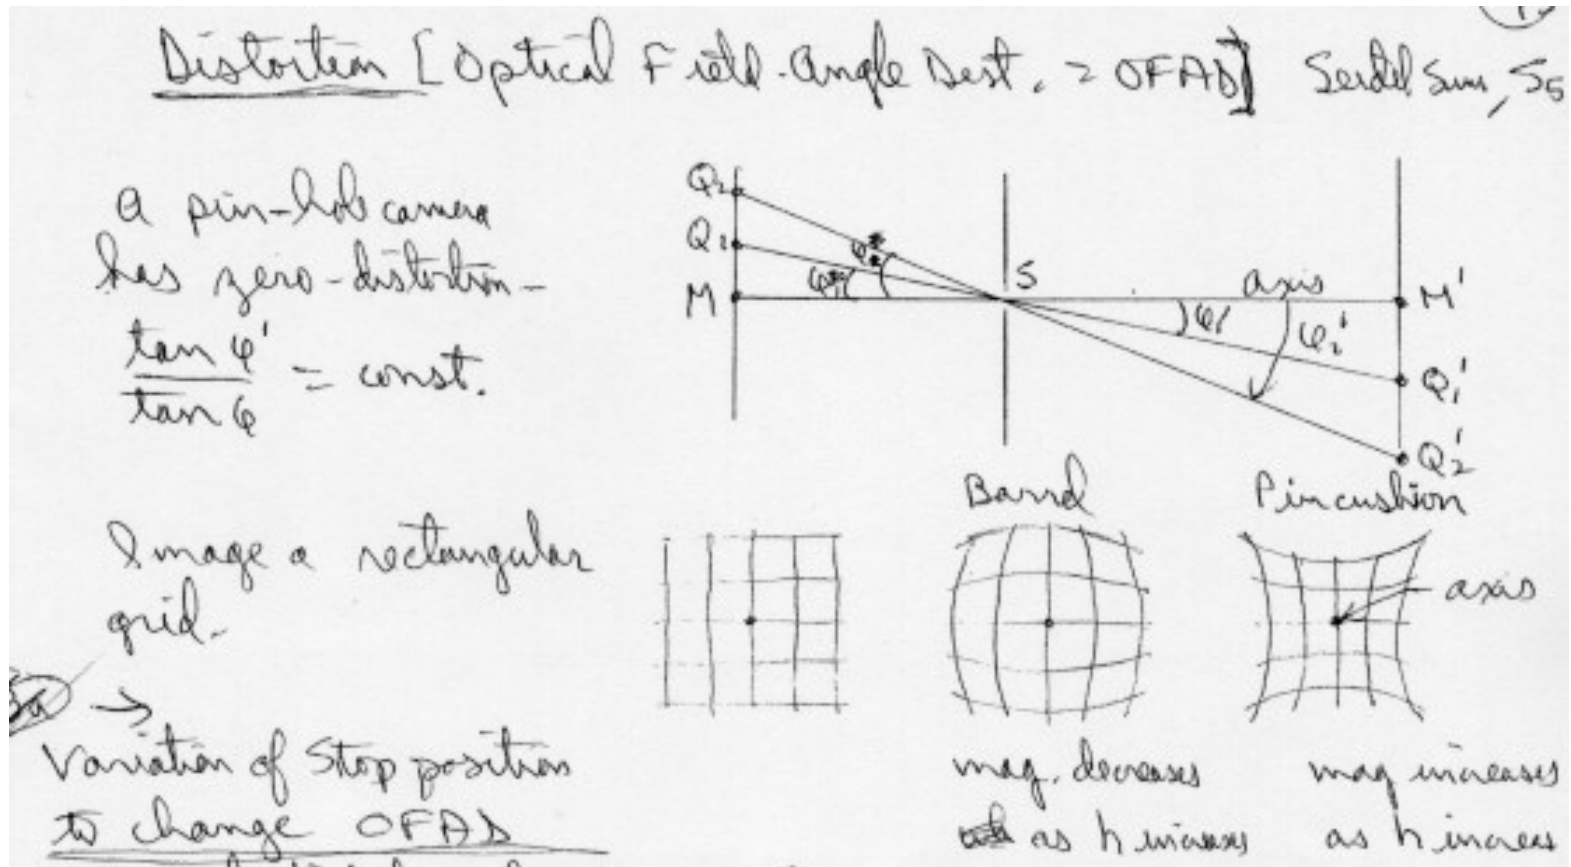 Distortion [Optical Field-Angle Dist. = OFAD] Seidel Sum, S5
A pin-hole camera
has zero-distortion-
tan φ'
tan φ
= const.
Q2
Q1
M
φ2
φ1
S
axis
M'
φ1'
φ2'
Q1'
Q2'
Barrel
Pincushion
Image a rectangular
grid.
axis
Variation of Stop position
to change OFAD
mag. decreases
as h increases
mag increases
as h increas